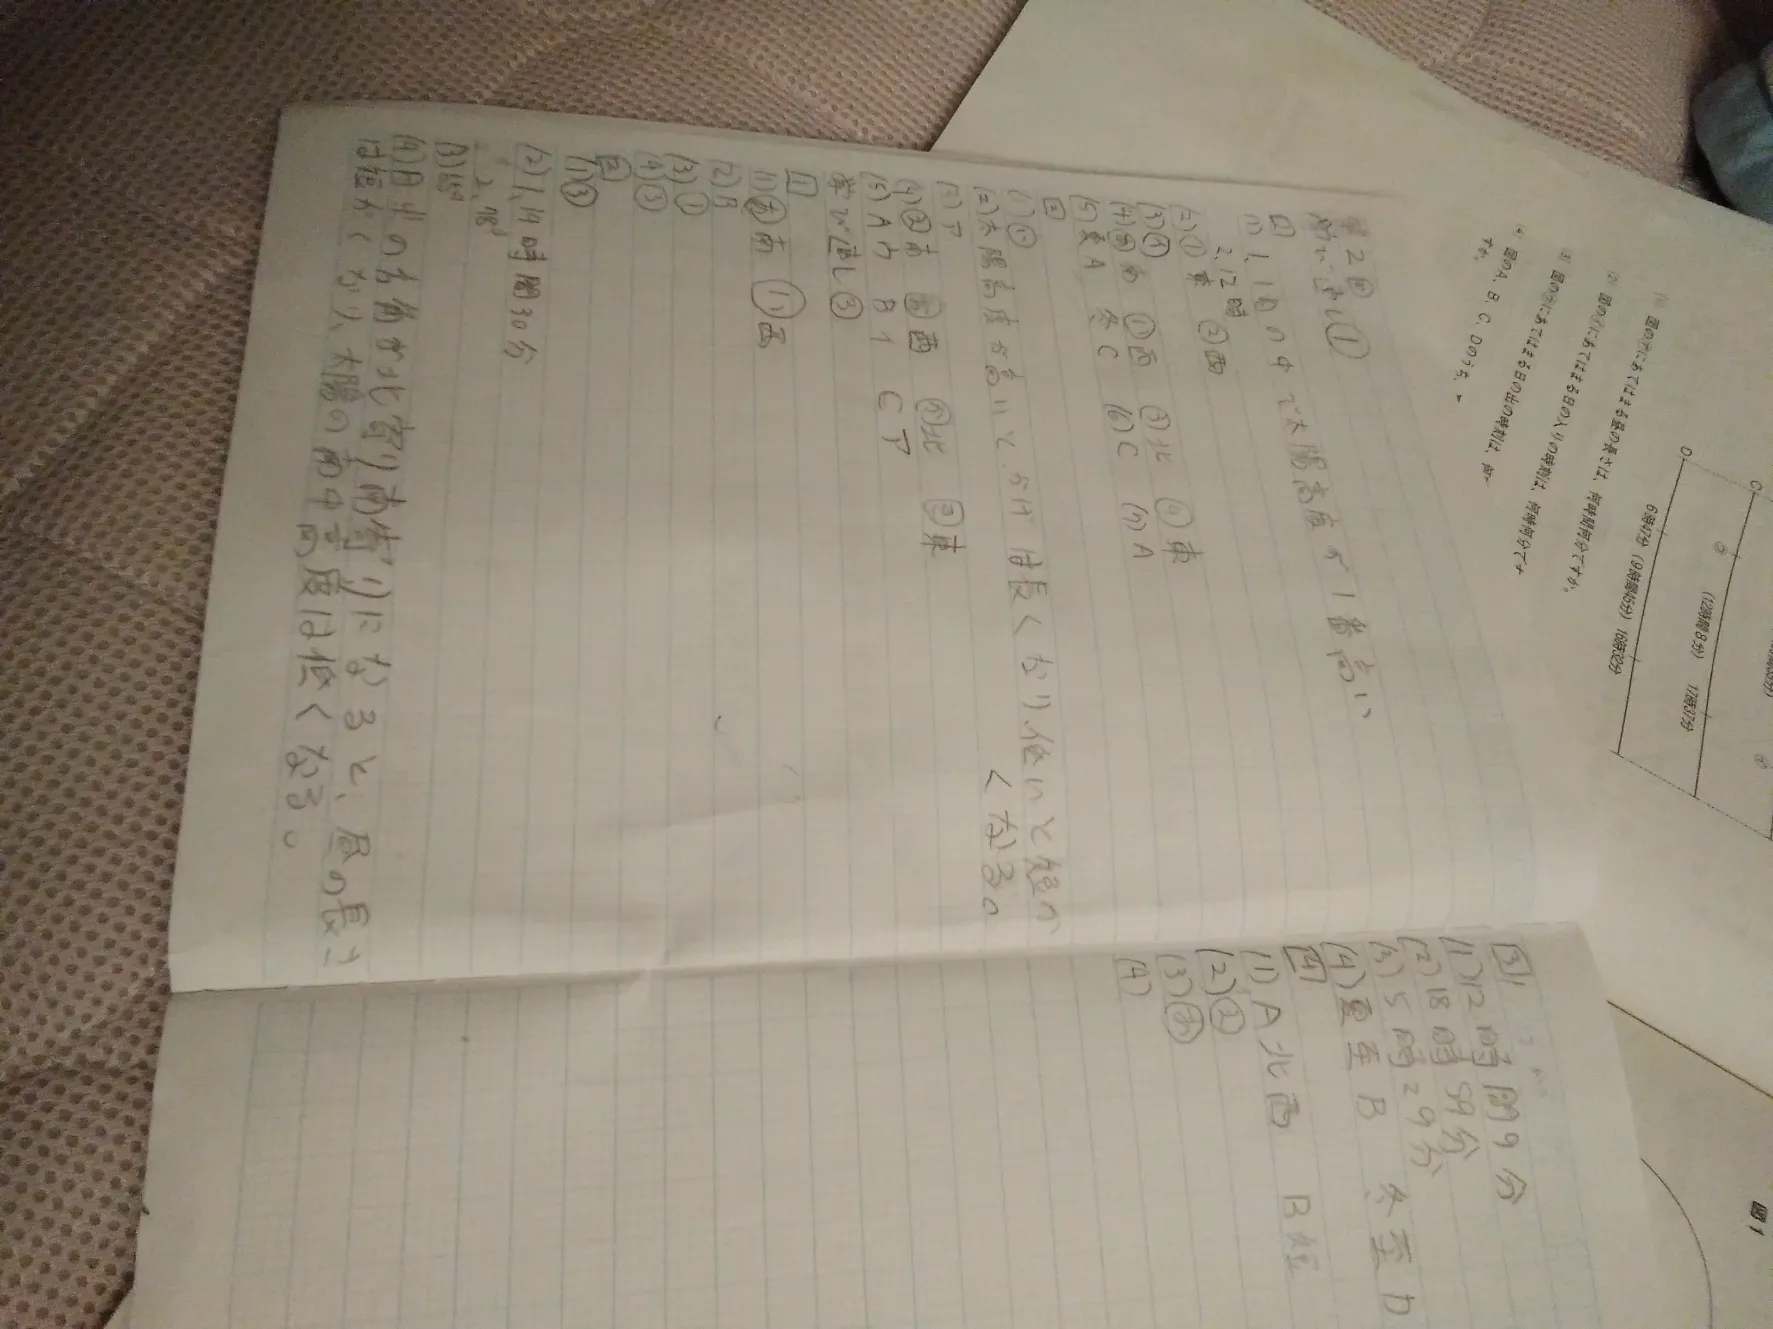 第2回
学び直し①
1
(1)1,1日の中で太陽高度が1番高い
2,12時
(2)①東 ②西
(3)④
(4)⑦南 ①西 ⑨北 ④東
(5)夏A 冬C (6)C (7)A
2
(1)
(2)太陽高度が高いと、かげは長くなり、低いと短か
くなる。
(3)ア
(4) 南 西 北 東
(5)Aウ Bイ Cア
学び直し③
1
(1) 南 ① 西
(2)B
(3)①
(4)③
2
(1)③
(2)1,14時間30分
2,78°
(3)
(4)日光の方角が北寄り(南寄り)になると、昼の長さ
は短かくなり、太陽の南中高度は低くなる。
3
(1)12時間9分
(2)18時59分
(3)5時29分
(4)夏至B 冬至D
4
(1)A北西 B
(2)②
(3)
(4)
D
6時47分(9時間45分)16時32分
C
(12時間8分) 17時37分
(1) 図の⑦にあてはまる昼の長さは、何時間何分ですか。
(2) 図の①にあてはまる日の入りの時刻は、何時何分です
(3) 図の⑨にあてはまる日の出の時刻は、何
(4) 図のA、B、C、Dのうち、
すか。
図1